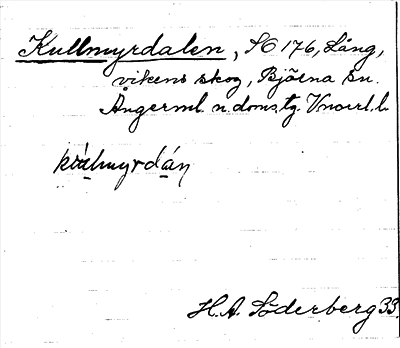 Kullmyrdalen, SO 176, Lång,
vikens skog, Bjärna sn.
Ångerml. n. doms.tg. Vnorrl. l.
kulmyrdán
H.A. Söderberg 33.